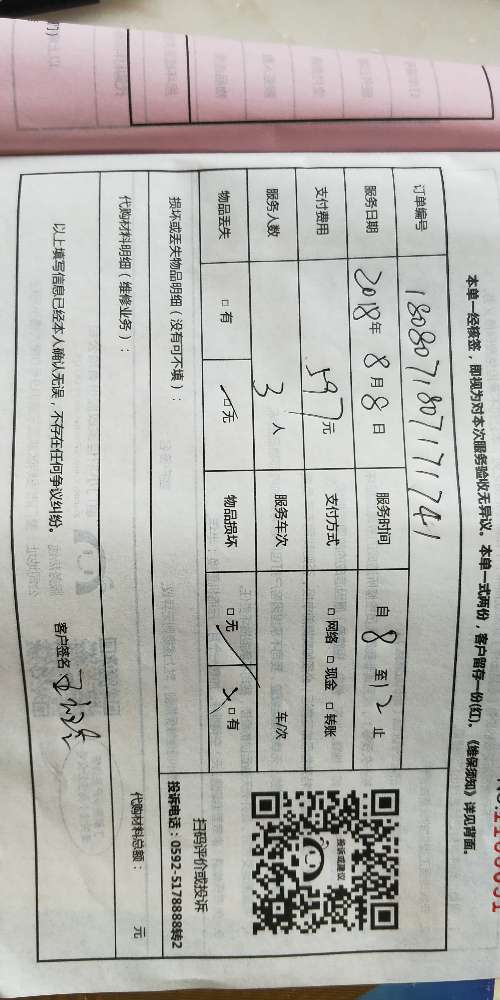 本单一经核签，即视为对本次服务验收无异议。本单一式两份，客户留存一份(红)，《维保须知》详见背面。
订单编号 180807180717 1741
服务日期 2018年 8月 8日 服务时间 自 8 至 12 止
支付费用 597元 支付方式 □ 网络 □ 现金 □ 转账
服务人数 3 人 服务车次 车/次
物品丢失 □ 有 □ 无 物品损坏 □ 无 □ 有
投诉或建议
扫码评价或投诉
投诉电话：0592-5178888转2
损坏或丢失物品明细（没有可不填）：
代购材料明细（维修业务）：
代购材料总额： 元
以上填写信息已经本人确认无误，不存在任何争议纠纷。
客户签名